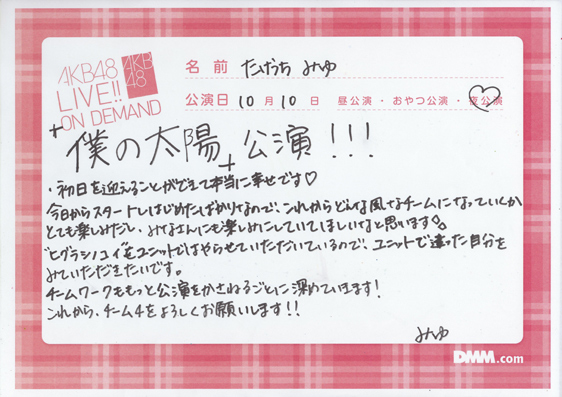 AKB48
LIVE!!
ON DEMAND
AKB
48
名前 たけうち みゆ
公演日 10月10日 昼公演・おやつ公演・夜公演
僕の太陽 公演!!!
・初日を迎えることができて本当に幸せです♡
今日からスタートしはじめたばかりなので、これからどんな風なチームになっていくか
とても楽しみだし、みなさんにも楽しみにしていてほしいなと思います
"ヒグラシノコイ"をユニットではやらせていただいているので、ユニットで違った自分を
みていただきたいです。
チームワークももっと公演をかさねるごとに深めていきます!
これから、チーム4をよろしくお願いします!!
みゆ
DMM.com